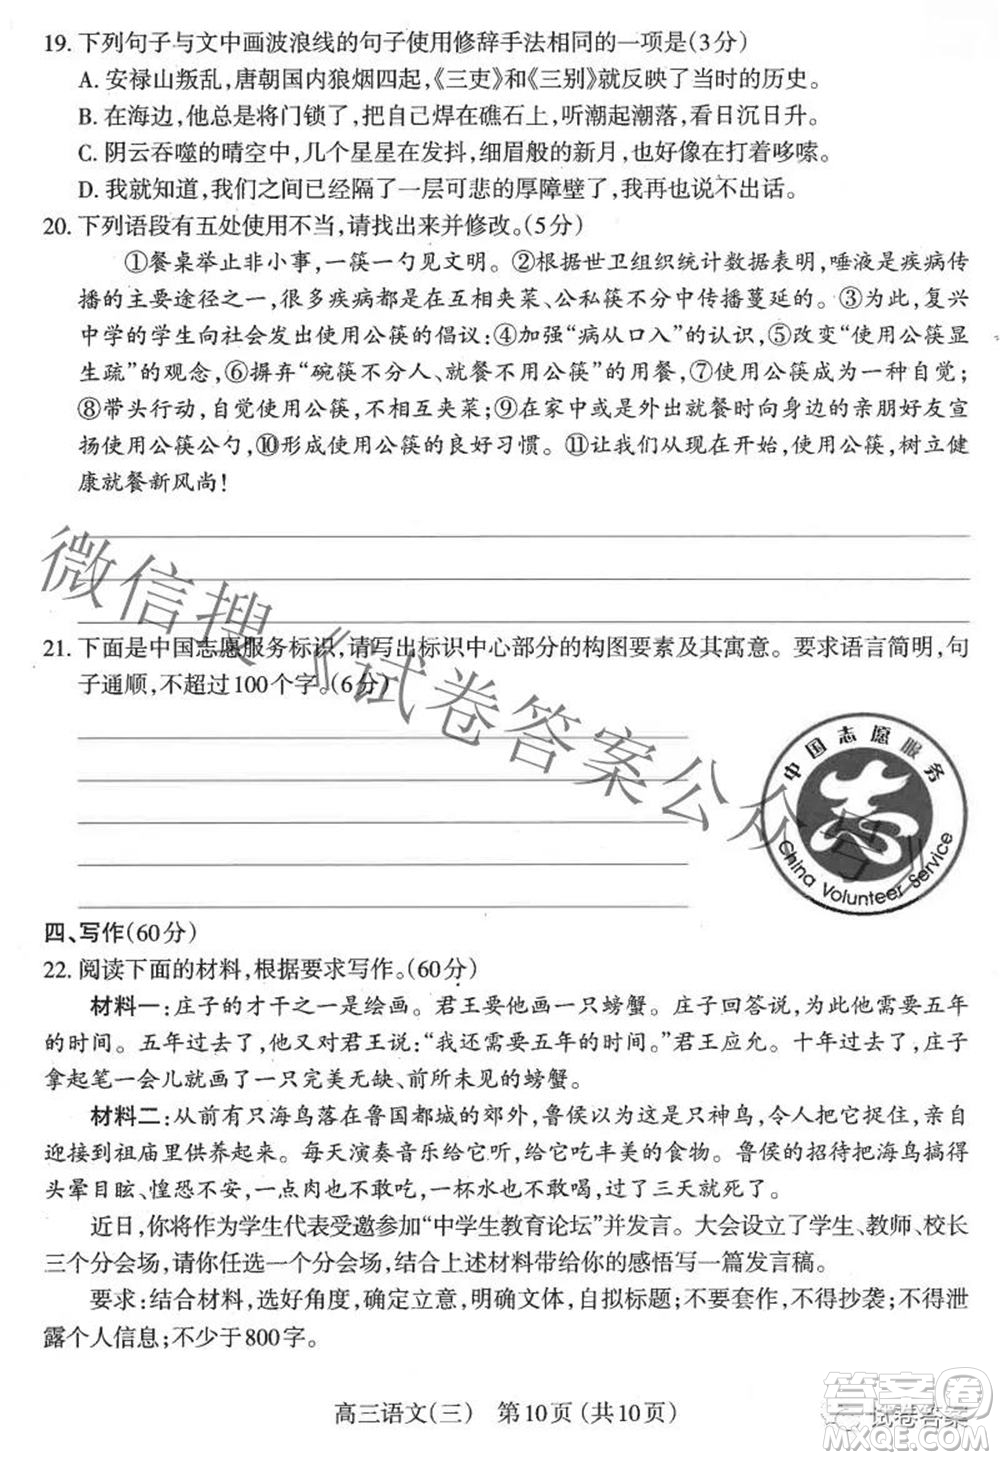 19. 下列句子与文中画波浪线的句子使用修辞手法相同的一项是(3分)
A. 安禄山叛乱,唐朝国内狼烟四起,《三吏》和《三别》就反映了当时的历史。
B. 在海边,他总是将门锁了,把自己焊在礁石上,听潮起潮落,看日沉日升。
C. 阴云吞噬的晴空中,几个星星在发抖,细眉般的新月,也好像在打着哆嗦。
D. 我就知道,我们之间已经隔了一层可悲的厚障壁了,我再也说不出话。
20. 下列语段有五处使用不当,请找出来并修改。(5分)
①餐桌举止非小事,一筷一勺见文明。②根据世卫组织统计数据表明,唾液是疾病传
播的主要途径之一,很多疾病都是在互相夹菜、公私筷不分中传播蔓延的。③为此,复兴
中学的学生向社会发出使用公筷的倡议:④加强“病从口入”的认识,⑤改变“使用公筷显
生疏”的观念,⑥摒弃“碗筷不分人、就餐不用公筷”的用餐,⑦使用公筷成为一种自觉;
⑧带头行动,自觉使用公筷,不相互夹菜;⑨在家中或是外出就餐时向身边的亲朋好友宣
扬使用公筷公勺,⑩形成使用公筷的良好习惯。⑪让我们从现在开始,使用公筷,树立健
康就餐新风尚!
21. 下面是中国志愿服务标识,请写出标识中心部分的构图要素及其寓意。要求语言简明,句
子通顺,不超过100个字。(6分)
中国志愿服务
China Volunteer Service
四、写作(60分)
22. 阅读下面的材料,根据要求写作。(60分)
材料一:庄子的才干之一是绘画。君王要他画一只螃蟹。庄子回答说,他需要五年
的时间。五年过去了,他又对君王说:“我还需要五年的时间。”君王应允。十年过去了,庄子
拿起笔一会儿就画了一只完美无缺、前所未见的螃蟹。
材料二:从前有只海鸟落在鲁国都城的郊外,鲁侯以为这是只神鸟,令人把它捉住,亲自
迎接到祖庙里供养起来。每天演奏音乐给它听,给它吃丰美的食物。鲁侯的招待把海鸟搞得
头晕目眩、惶恐不安,一点肉也不敢吃,一杯水也不敢喝,过了三天就死了。
近日,你将作为学生代表受邀参加“中学生教育论坛”并发言。大会设立了学生、教师、校长
三个分会场,请你任选一个分会场,结合上述材料带给你的感悟写一篇发言稿。
要求:结合材料,选好角度,确定立意,明确文体,自拟标题;不要套作,不得抄袭;不得泄
露个人信息;不少于800字。
高三语文(三) 第10页(共10页)
微信搜《试卷答案公众号》
答案圈
试卷答案
MXQE.COM